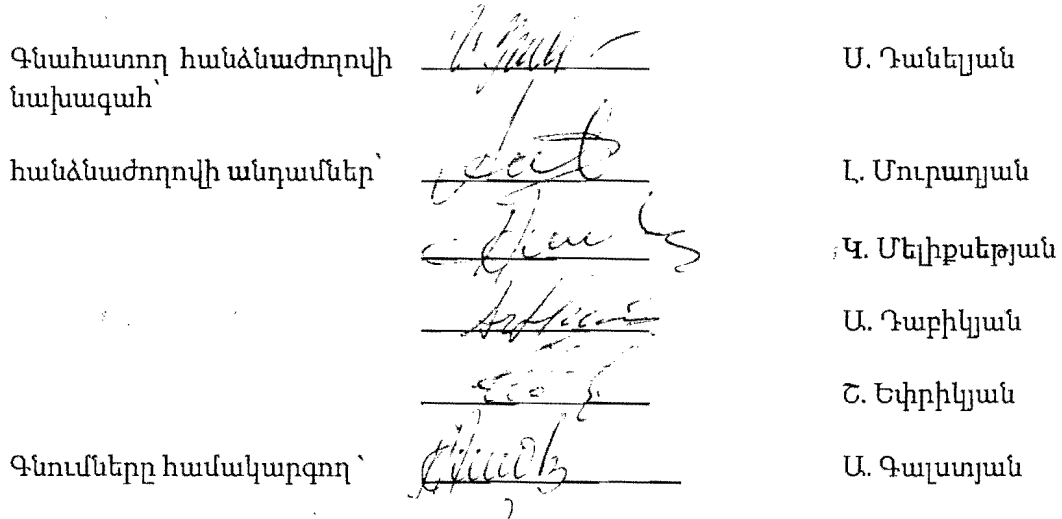 Գնահատող հանձնաժողովի Ս. Դանելյան
նախագահ՝
հանձնաժողովի անդամներ՝ Լ. Մուրադյան
Կ. Մելիքսեթյան
Ա. Դաբիկյան
Շ. Եփրիկյան
Գնումները համակարգող ՝ Ա. Գալստյան